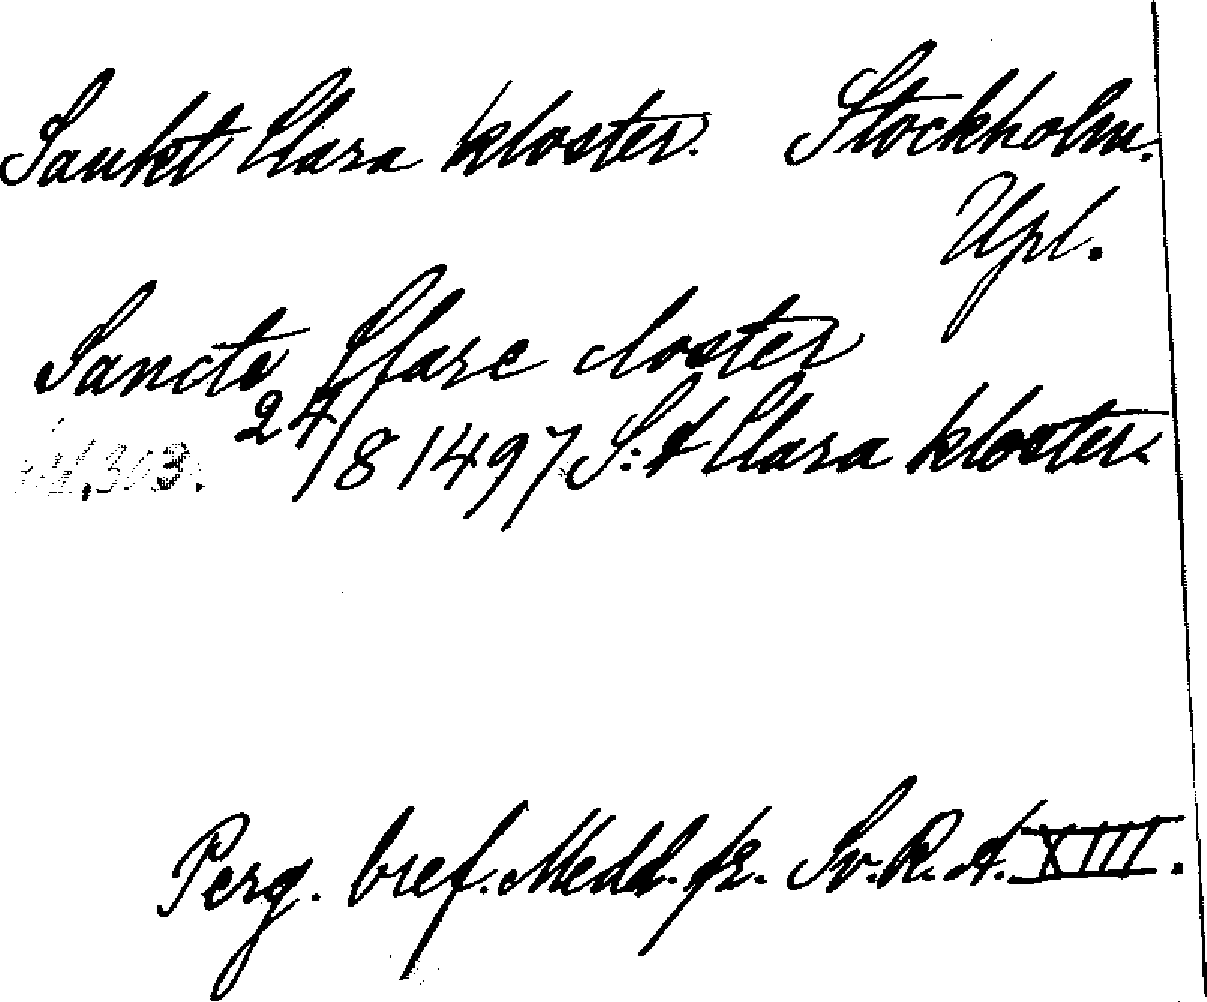 Sankt Clara kloster. Stockholm.
Upl.
Sancte Clare closter
24/8 1497 S:t Clara kloster.
Perg. bref. Medd. fr. Sv. R. A. XIII.